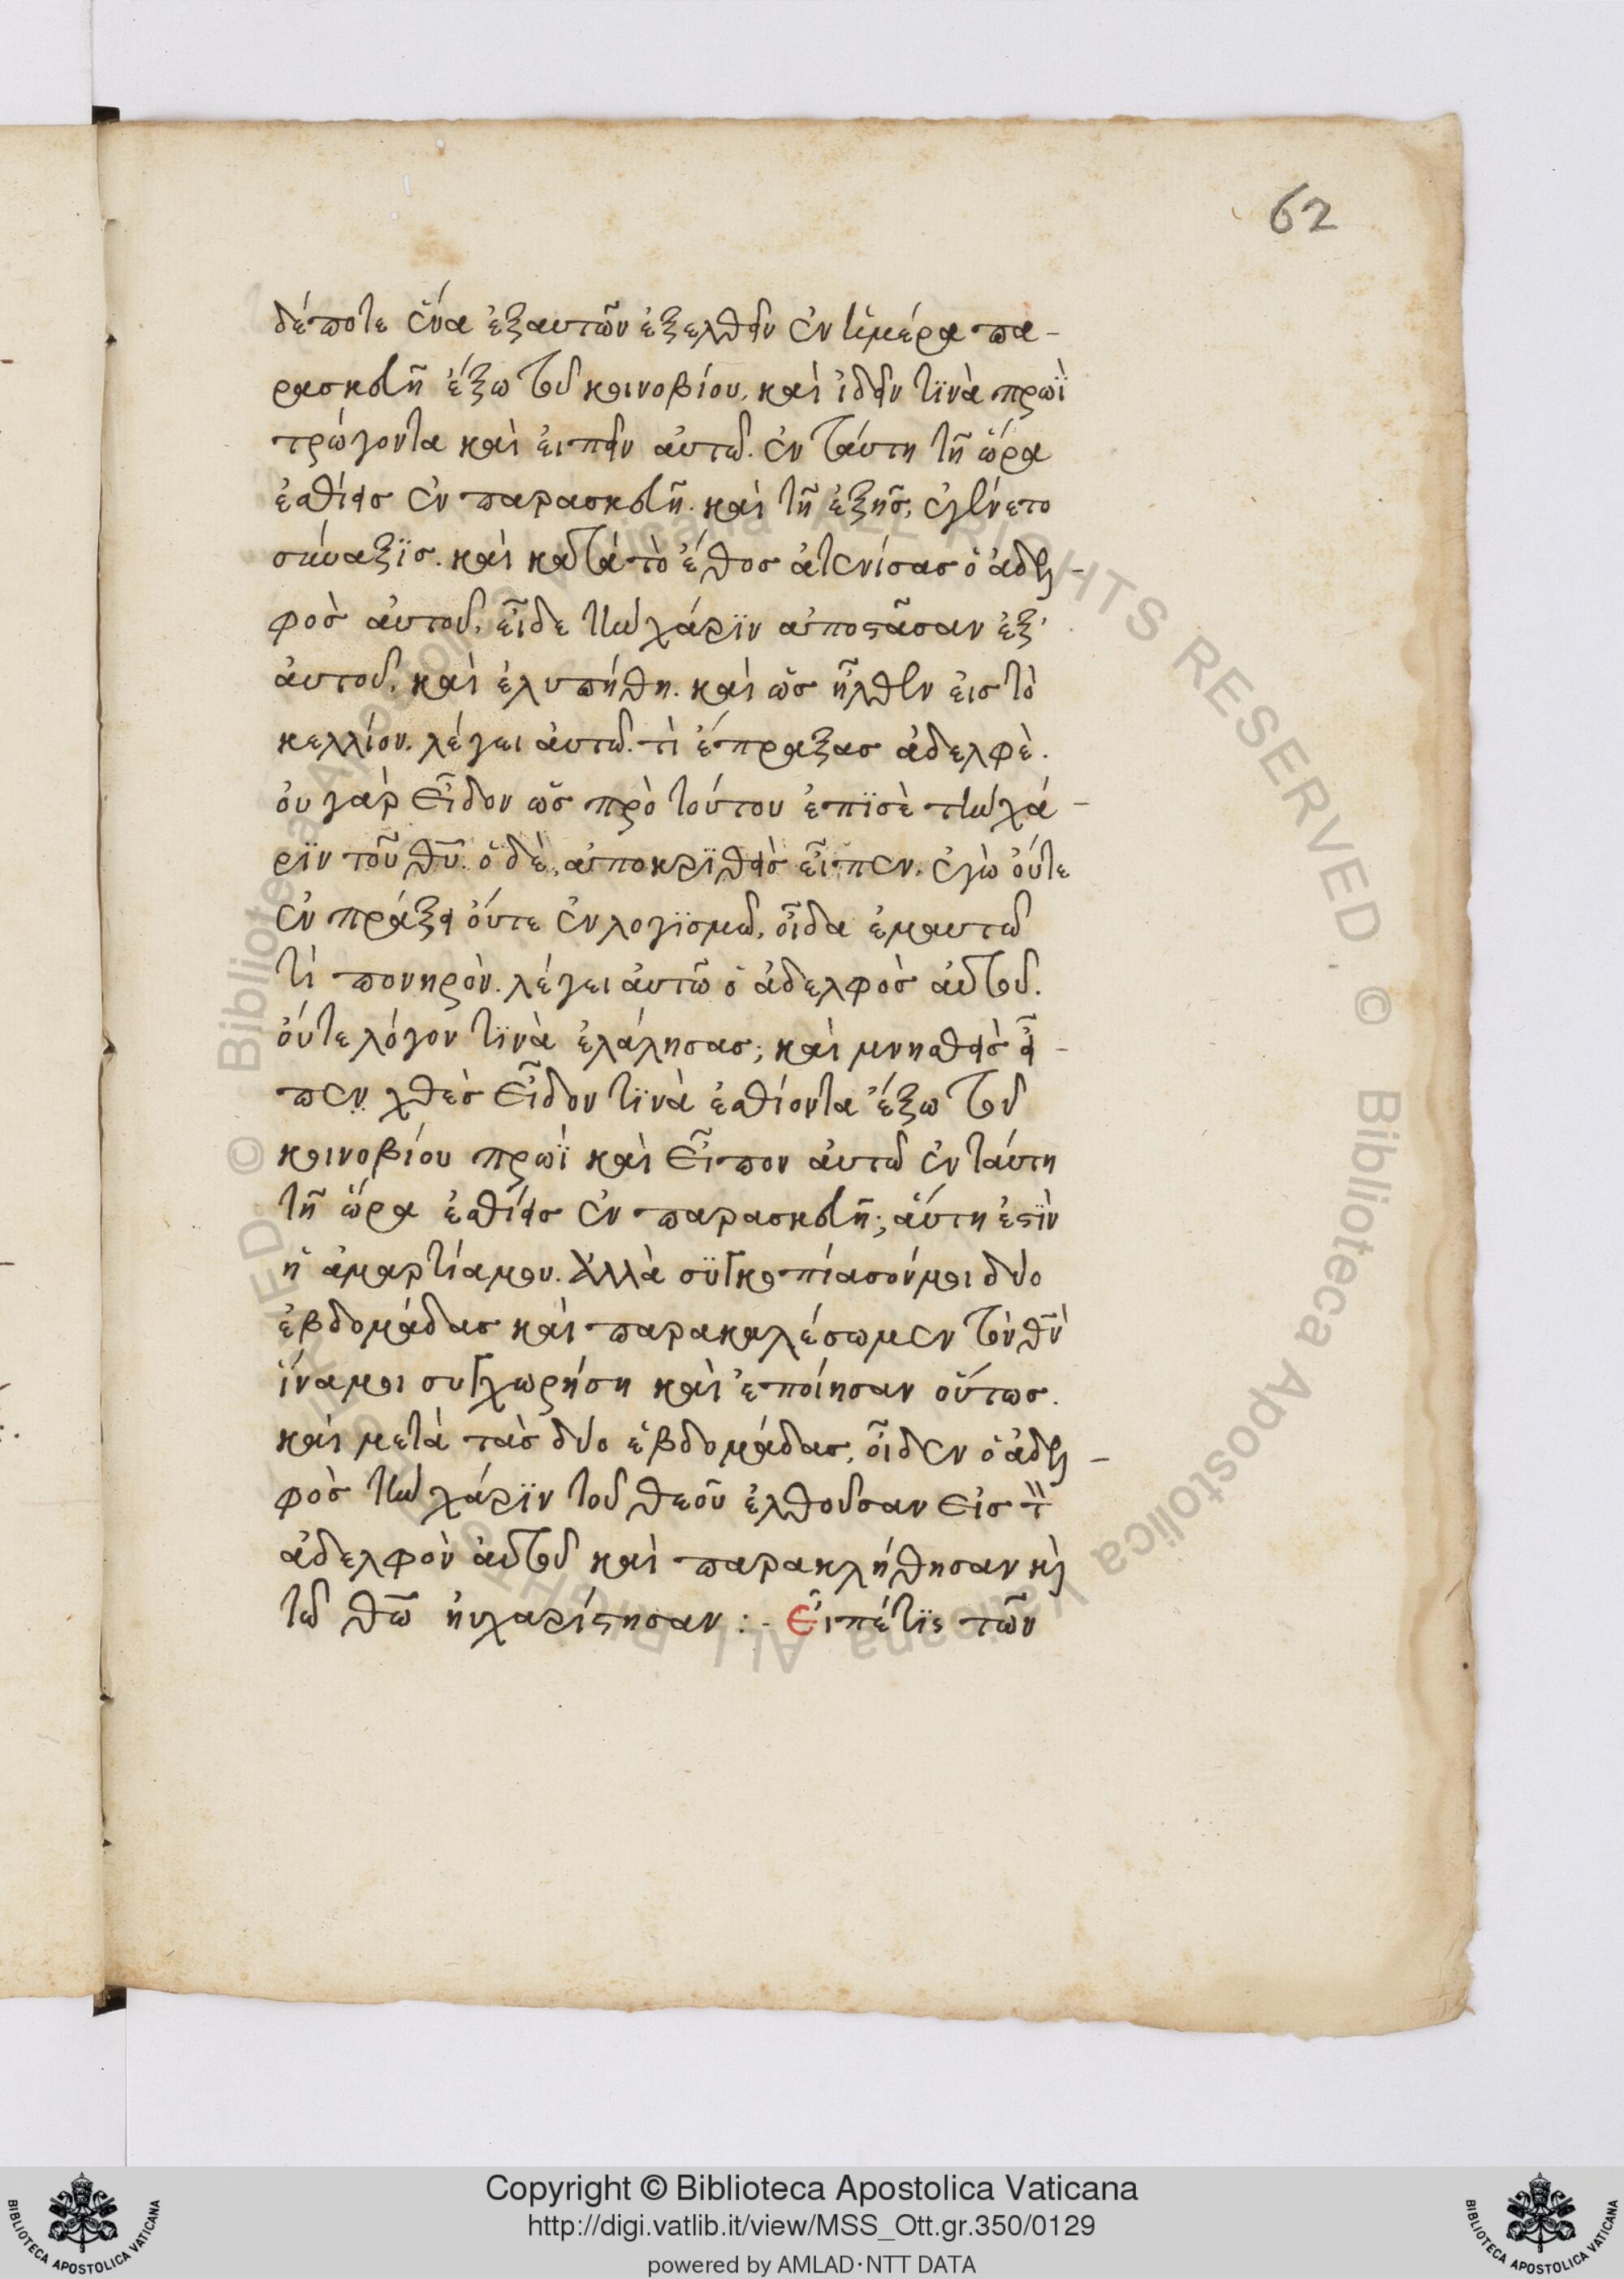 62
δέποτε ἕνα ἐξαυτῶν ἐξελθεῖν ἐν ἡμέρα πα-
ρασκευῆ ἔξω τοῦ κοινοβίου, καὶ ἰδεῖν τϊνὰ πρωῒ
τρώγοντα καὶ ἐιπεῖν ἀυτῶ. ἐν ταύτη τῆ ὥρα
ἐσθίεις ἐν παρασκευῆ. καὶ τῆ ἑξῆς, ἐγένετο
σύναξϊς. καὶ κατὰ τὸ ἔθος ἀτενίσας ὁ ἀδελ-
φὸς ἀυτοῦ, εἶδε τὴν χάρϊν ἀποστᾶσαν ἐξ'
ἀυτοῦ, καὶ ἐλυπήθη. καὶ ὡς ἦλθεν ἐις τὸ
κελλίον. λέγει ἀυτῶ. τὶ ἔπραξας ἀδελφὲ.
ὀυ γὰρ εἶδον ὡς πρὸ τούτου ἐπϊσὲ τὴν χά-
ρϊν τοῦ θῦ. ὁ δὲ, ἀποκρϊθεὶς εἶπεν. ἐγὼ ὀύτε
ἐν πράξει ὀύτε ἐν λογϊσμῶ, οἶδα ἐμαυτῶ
τὶ πονηρὸν. λέγει ἀυτῶ ὁ ἀδελφὸς ἀυτοῦ.
ὀύτε λόγον τϊνὰ ἐλάλησας; καὶ μνησθεὶς εἶ-
πεν χθὲς εἶδον τϊνὰ ἐσθίοντα ἔξω τοῦ
κοινοβίου πρωῒ καὶ εἶπον ἀυτῶ ἐν ταύτη
τῆ ὥρα ἐσθίεις ἐν παρασκευῆ; ἅυτη ἐστϊν
ἡ ἁμαρτίαμου. Ἀλλὰ σϋγκοπίασούμοι δύο
ἑβδομάδας καὶ παρακαλέσωμεν τὸν θν̄
ἵναμοι συγχωρήση καὶ ἐποίησαν οὕτως.
καὶ μετὰ τὰς δύο ἑβδομάδας, οἶδεν ὁ ἀδελ-
φὸς τὴν χάρϊν τοῦ θεοῦ ἐλθοῦσαν εἰς τὸν
ἀδελφὸν ἀυτοῦ καὶ παρακλήθησαν κὶ
τῶ θῶ ηὐχαρίστησαν :- Εἶπέ τϊς τῶν
Copyright © Biblioteca Apostolica Vaticana
http://digi.vatlib.it/view/MSS_Ott.gr.350/0129
powered by AMLAD·NTT DATA